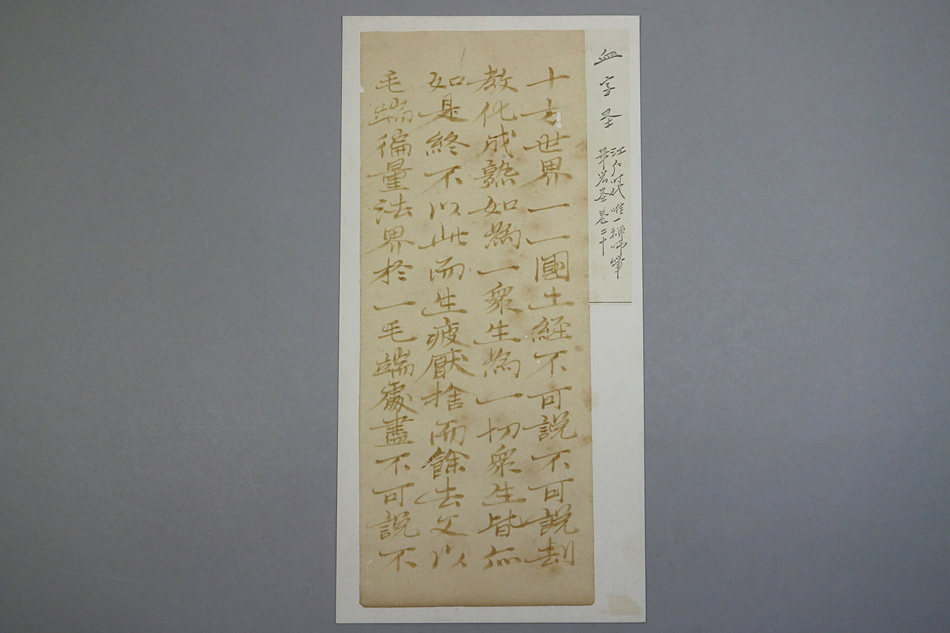 血字圣
江戸時代 唯一禅師筆
華岩圣巻二十
十方世界一一國土経不可説不可説劫
教化成熟如為一衆生為一切衆生皆亦
如是終不以此而生疲厭捨而餘去又以
毛端徧量法界於一毛端處盡不可説不